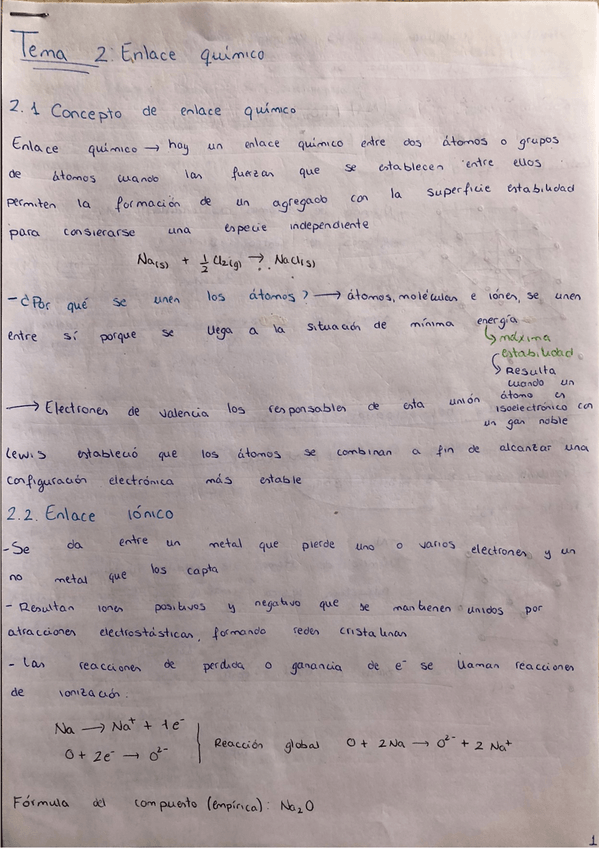 Tema 2: Enlace químico
2.1 Concepto de enlace químico
Enlace químico → hay un enlace químico entre dos átomos o grupos
de átomos cuando las fuerzas que se establecen entre ellos
permiten la formación de un agregado con la superficie estabilidad
para consierarse una especie independiente
Na(s) + 1/2 Cl2(g) → NaCl(s)
- ¿Por qué se unen los átomos? → átomos, moléculas e iónes, se unen
entre sí porque se llega a la situación de mínima energía
máxima
estabilidad
Resulta
cuando un
átomo es
isoelectrónico con
un gas noble
→ Electrones de valencia los responsables de esta unión
Lewis estableció que los átomos se combinan a fin de alcanzar una
configuración electrónica más estable
2.2. Enlace iónico
- Se da entre un metal que pierde uno o varios electrones y un
no metal que los capta
- Resultan iones positivos y negativo que se mantienen unidos por
atracciones electrostásticas, formando redes cristalinas
- Las reacciones de perdida o ganancia de e⁻ se llaman reacciones
de ionización:
Na → Na⁺ + 1e⁻
O + 2e⁻ → O²⁻
Reacción global O + 2Na → O²⁻ + 2 Na⁺
Fórmula del compuesto (empírica): Na₂O
1